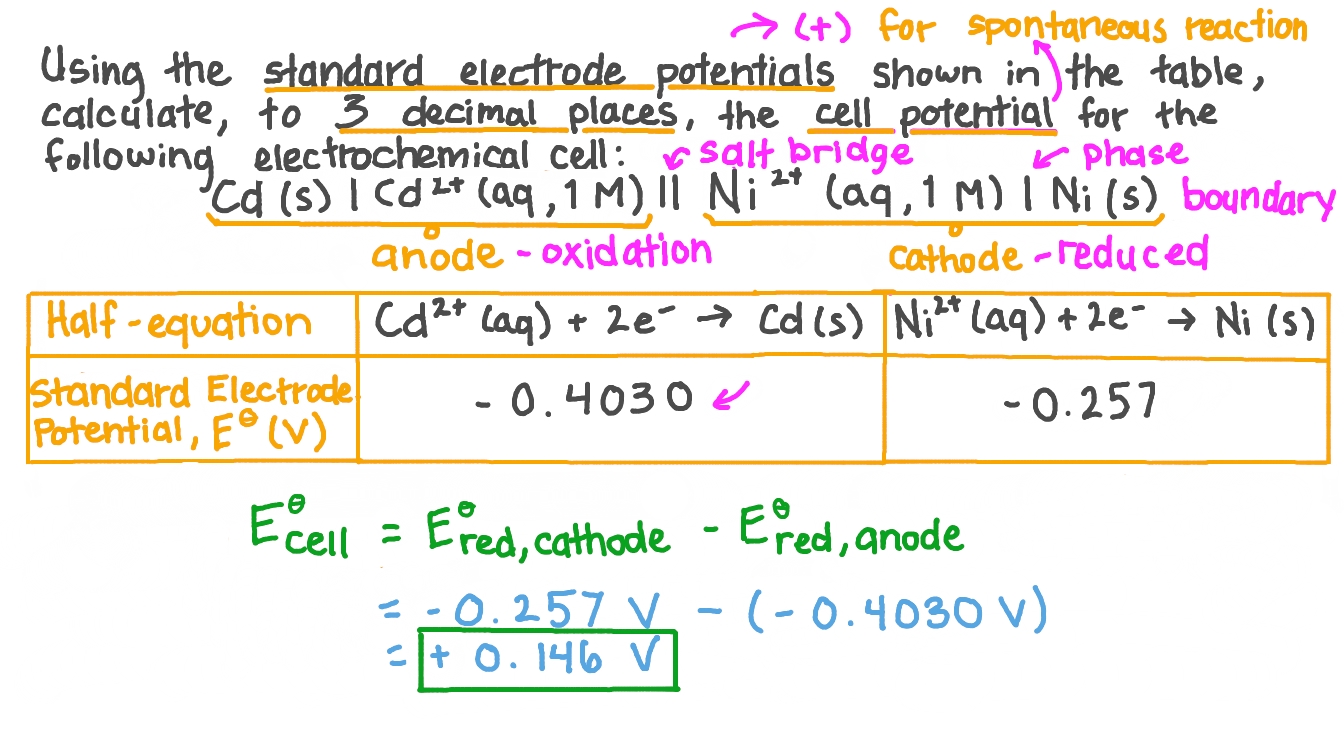 → (+) for spontaneous reaction
Using the standard electrode potentials shown in the table,
calculate, to 3 decimal places, the cell potential for the
following electrochemical cell: ↙ salt bridge ↙ phase
Cd (s) | Cd²⁺ (aq, 1 M) || Ni²⁺ (aq, 1 M) | Ni (s) boundary
anode - oxidation cathode - reduced
Half-equation Cd²⁺ (aq) + 2e⁻ → Cd (s) Ni²⁺ (aq) + 2e⁻ → Ni (s)
Standard Electrode
Potential, E^θ (V) - 0.4030 ↙ - 0.257
E^θ cell = E^θ red, cathode - E^θ red, anode
= - 0.257 V - (- 0.4030 V)
= + 0.146 V